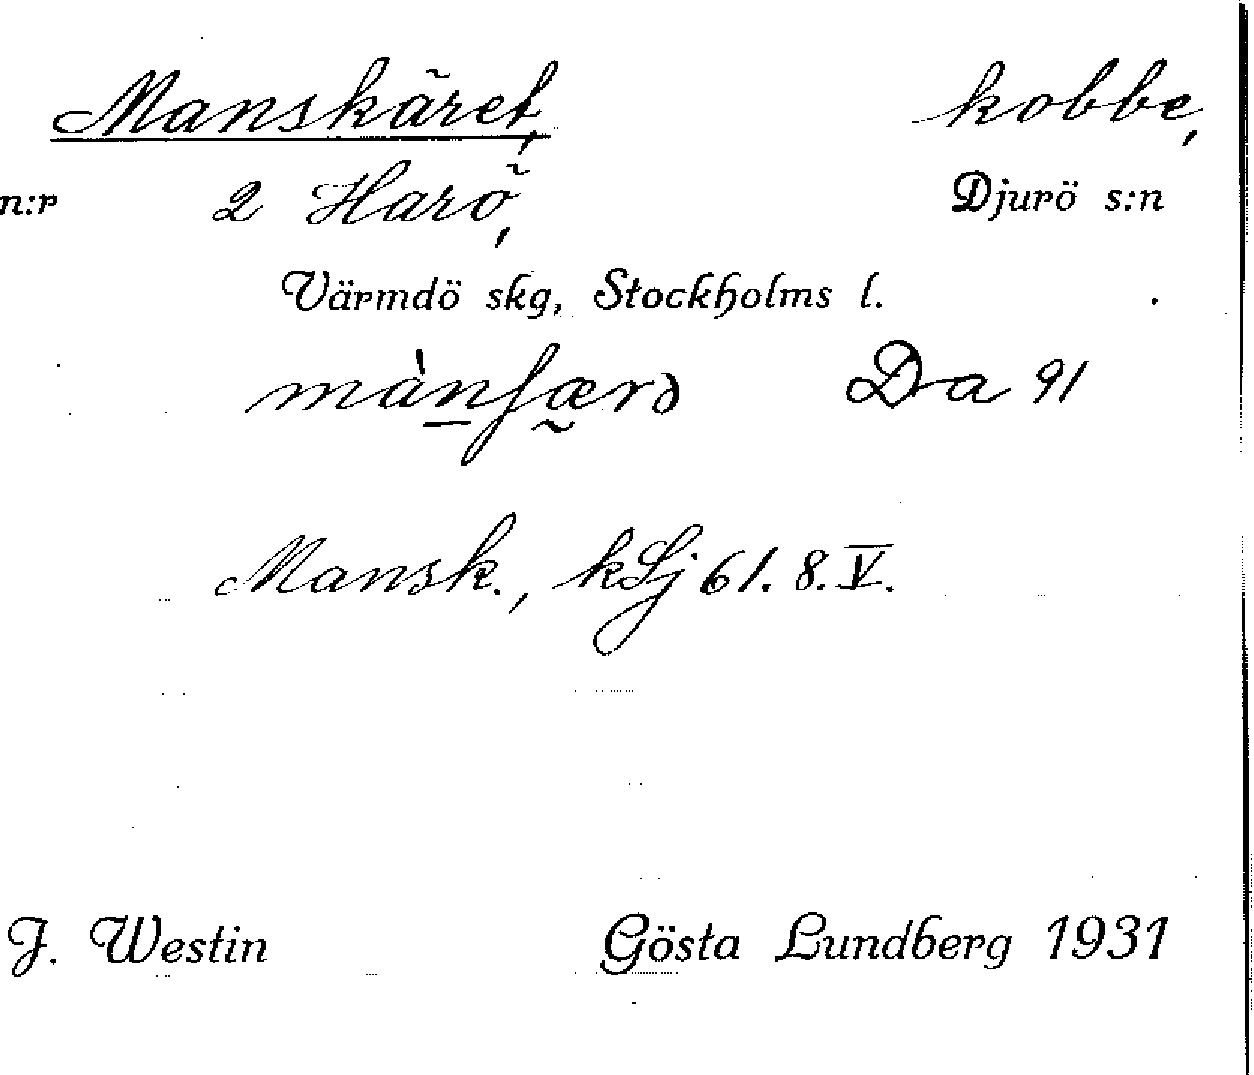 Manskäret, kobbe,
n:r 2 Harö, Djurö s:n
Värmdö skg, Stockholms l.
Da 91
Mansk., kLj 61. 8. V.
J. Westin Gösta Lundberg 1931